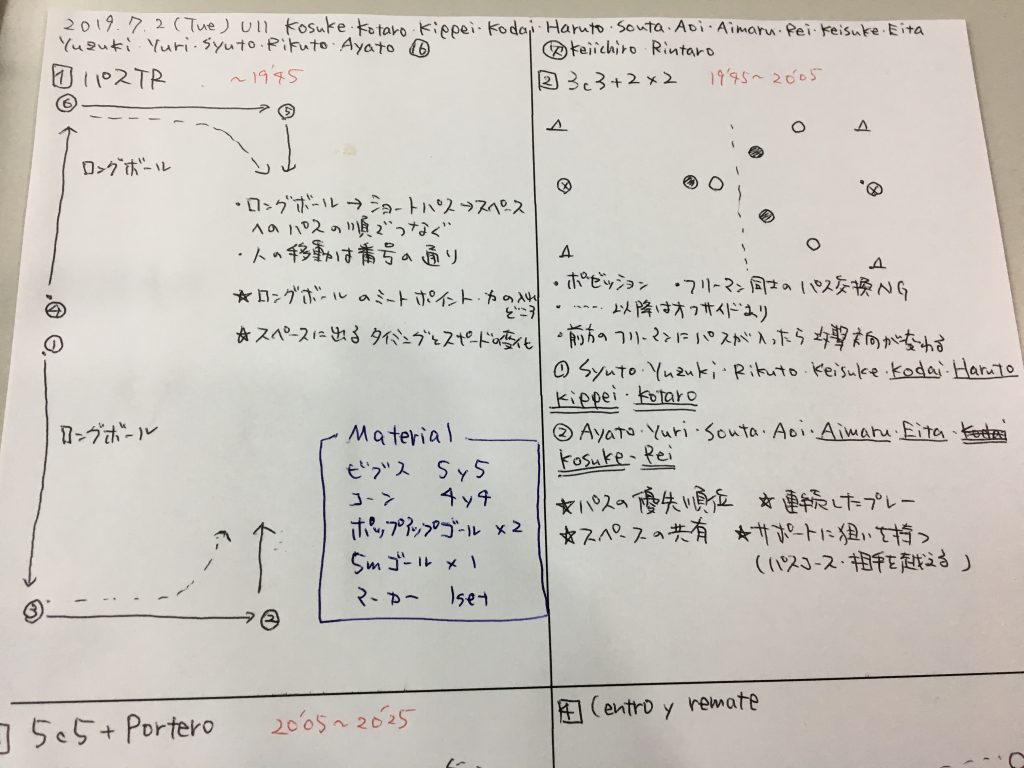 2019.7.2(Tue) U11 Kosuke・Kotaro・Kippei・Kodai・Haruto・Souta・Aoi・Aimaru・Rei・Keisuke・Eita
Yuzuki・Yuri・Syuto・Rikuto・Ayato ⑯
Keiichiro・Rintaro
1 パスTR ~19'45
⑥
⑤
ロングボール
・ロングボール→ショートパス→スペース
へのパスの順でつなぐ
・人の移動は番号の通り
☆ロングボールのミートポイント・力の入れ
どころ
☆スペースに出るタイミングとスピードの変化
④
①
ロングボール
③
②
Material
ビブス 5y5
コーン 4y4
ポップアップゴール ×2
5mゴール ×1
マーカー 1set
2 3c3+2×2 19'45~20'05
・ポゼッション ・フリーマン同士のパス交換NG
・----- 以降はオフサイドあり
・前方のフリーマンにパスが入ったら攻撃方向が変わる
① Syuto・Yuzuki・Rikuto・Keisuke・Kodai・Haruto
Kippei・Kotaro
② Ayato・Yuri・Souta・Aoi・Aimaru・Eita・Kodai
Kosuke・Rei
☆パスの優先順位 ☆連続したプレー
☆スペースの共有 ☆サポートに狙いを持つ
(パスコース・相手を越える)
5c5+Portero 20'05~20'25
4 Centro y remate